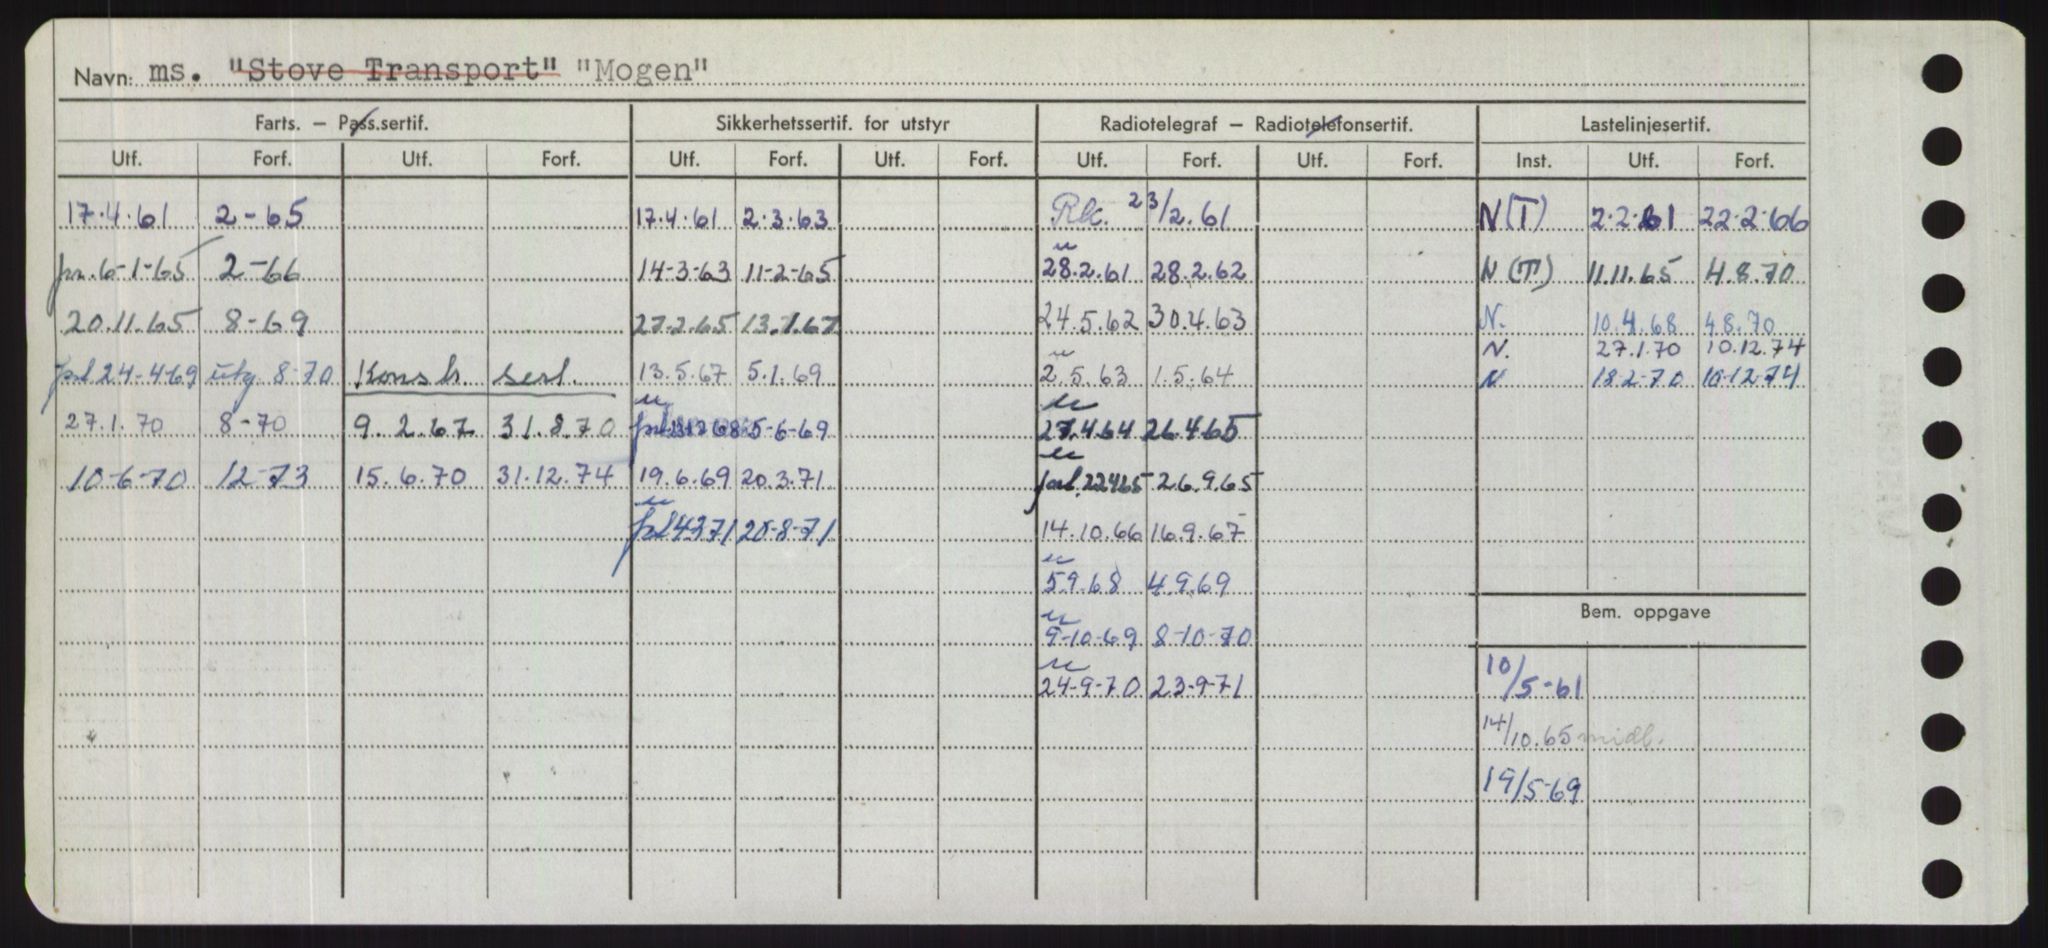 Navn: ms. "Stove Transport" "Mogen"
Farts. – Pass.sertif. Sikkerhetssertif. for utstyr Radiotelegraf – Radiotelefonsertif. Lastelinjesertif.
Utf. Forf. Utf. Forf. Utf. Forf. Utf. Forf. Utf. Forf. Utf. Forf. Inst. Utf. Forf.
17.4.61 2-65 17.4.61 2.3.63 23/2.61 N(T) 2.2.61 22.2.66
6-1-65 2-66 14-3-63 11-2-65 28.2.61 28.2.62 N(T) 11.11.65 4.8.70
20.11.65 8-69 27.2.65 13.1.67 24.5.62 30.4.63 N. 10.4.68 4.8.70
N. 27.1.70 10.12.74
24-4-69 utg 8-70 Konstr. sert. 13.5.67 5.1.69 2.5.63 1.5.64 N 18-2-70 10-12-74
27.1.70 8-70 9.2.67 31.8.70 5-6-69 27.4.64 26.4.65
10-6-70 12-73 15.6.70 31.12.74 19.6.69 20.3.71 forl. 22465 26.9.65
4371 20-8-71 14.10.66 16.9.67
5.9.68 4.9.69
Bem. oppgave
9-10-69 8-10-70
24-9-70 23-9-71 10/5-61
14/10.65 midl.
19/5-69